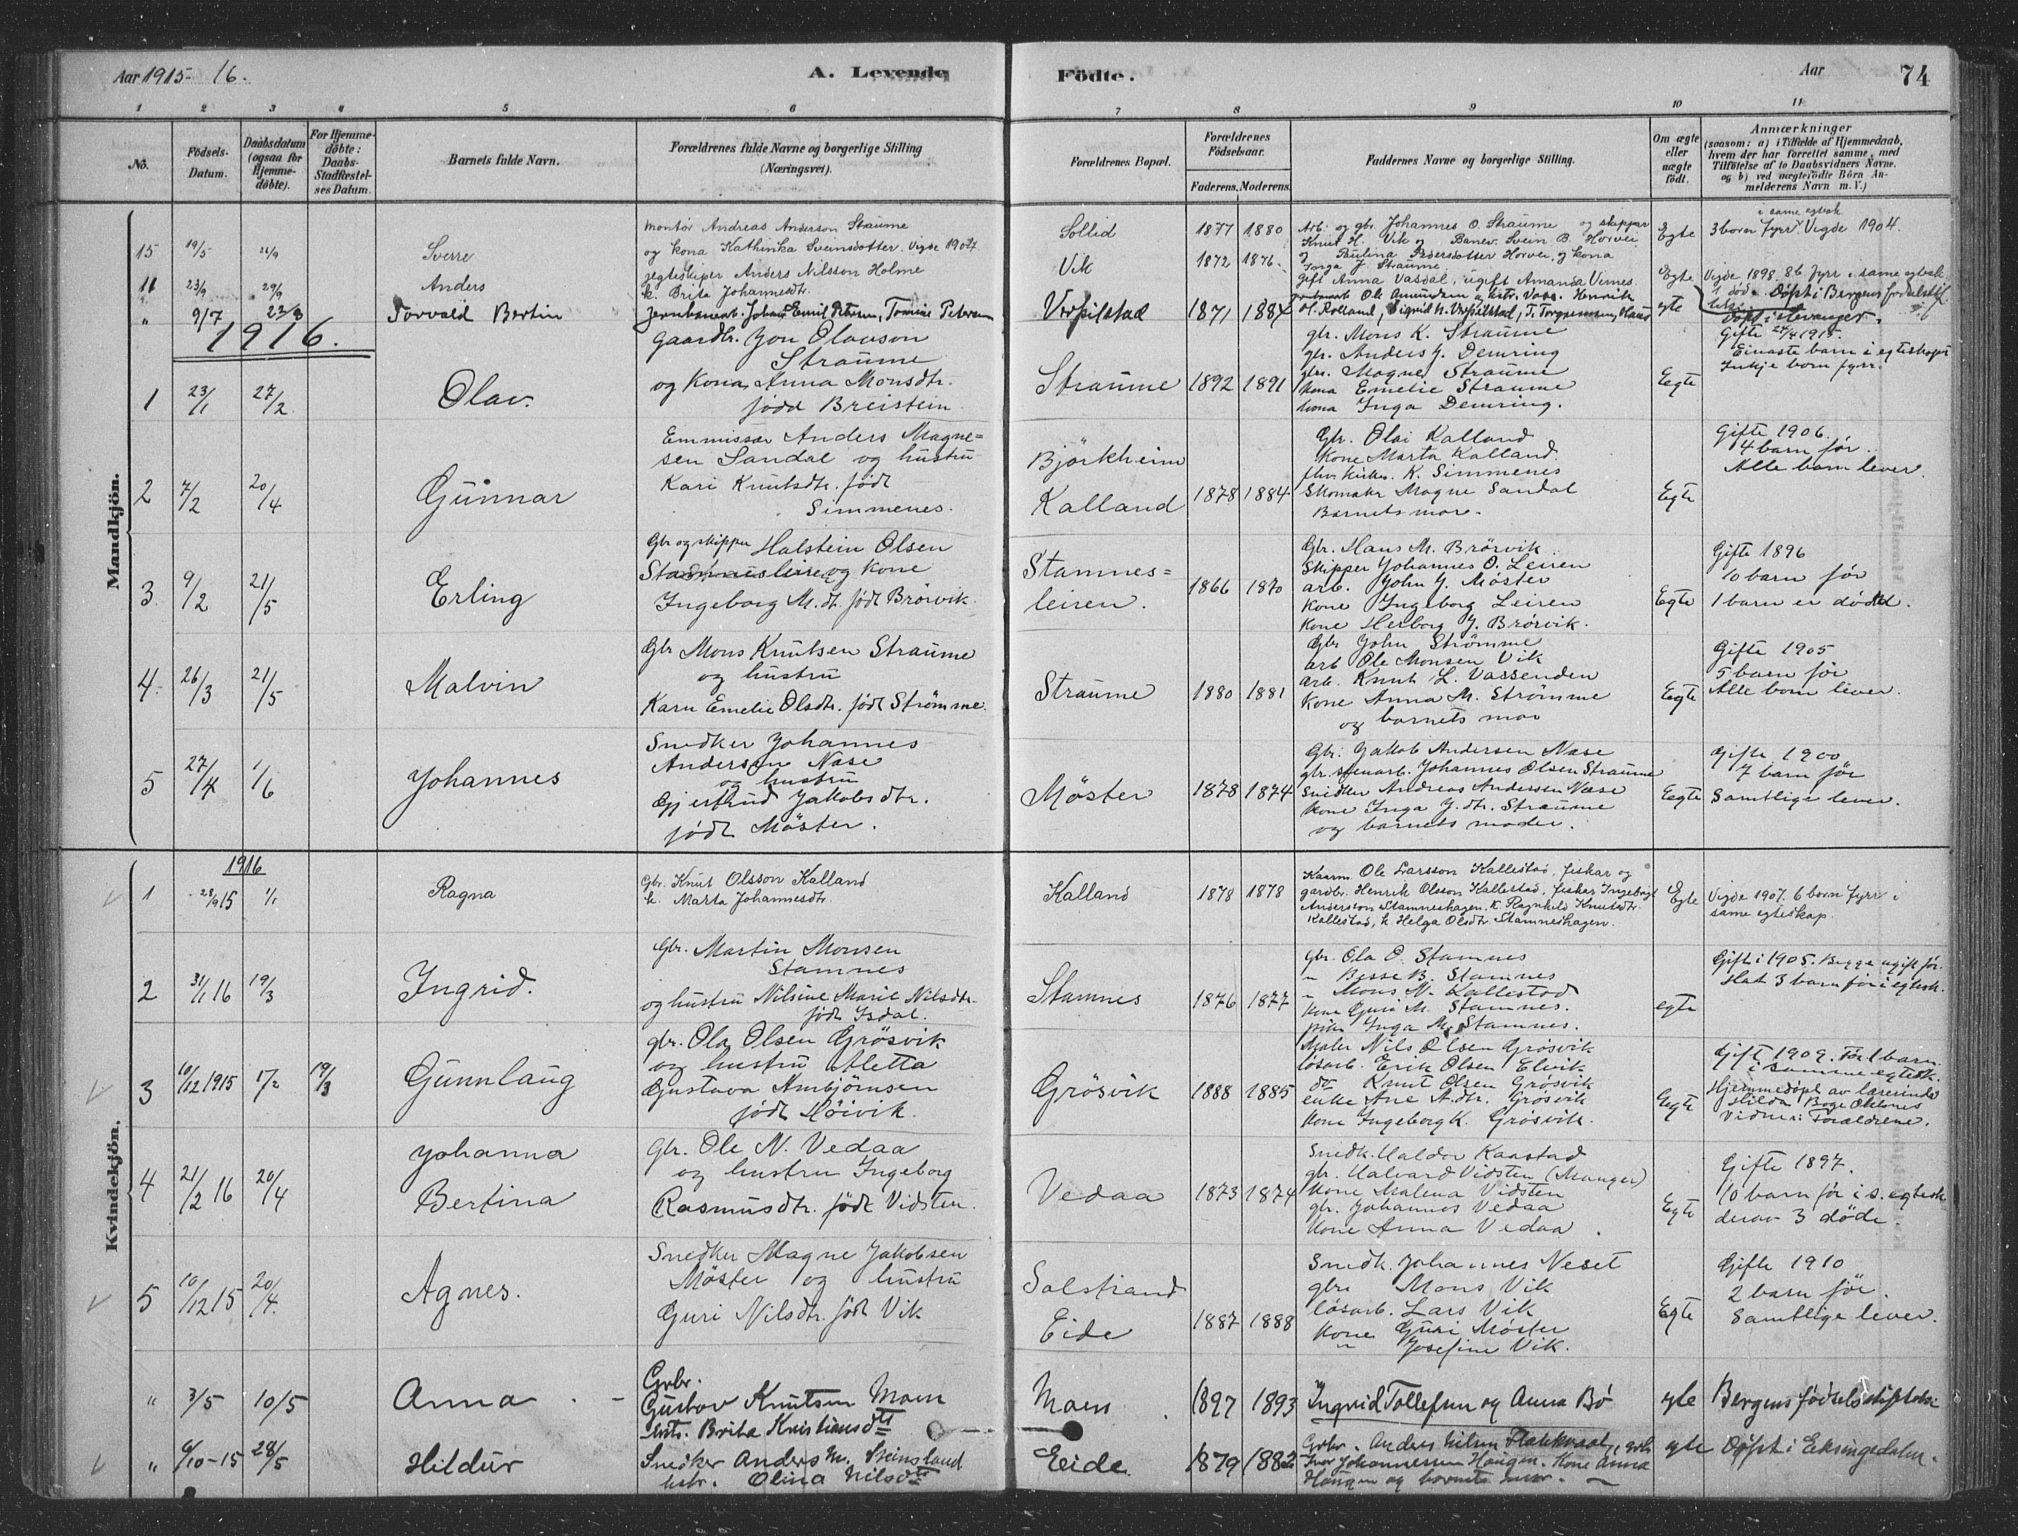 Aar 1915- 16.
A. Levende
Födte.
Aar
74
1 2 3 4 5 6 7 8 9 10 11
No.
Födsels-Datum.
Daabsdatum (ogsaa for Hjemme-döbte).
For Hjemme-döbte: Daabs-Stadfæstel-ses Datum.
Barnets fulde Navn.
Forældrenes fulde Navne og borgerlige Stilling (Næringsvei).
Forældrenes Bopæl.
Forældrenes Födselsaar.
Faderens. Moderens.
Faddernes Navne og borgerlige Stilling.
Om ægte eller uægte födt.
Anmærkninger
(saasom: a) i Tilfælde af Hjemmedaab,
hvem der har forrettet samme, med
Tilföielse af to Daabsvidners Navne.
og b) ved uægtefödte Börn An-
melderens Navn m. V.)
Mandkjön.
15 19/5 Sverre
Montör Andreas Anderson Straume
og kona Kathinka Sveinsdotter. Vigde 1904.
Sollid
1877 1880
Arb. og gbr Johannes O. Straume og skipper
Knut H. Vik og Banev. Svein B. Horvei
og Paulina Pedersdotter Horvei, og kona
Inga J. Straume.
Egte
3 born fyrr i same egtesk. Vigde 1904.
11 23/9 29/9 Anders
Jegteskiper Anders Nilsson Holme
k. Brita Johannesdtr.
Vik
1872 1876
Gift Anna Vasdal, ugift Amanda Vernes
Egte
Vigde 1898. 86 fyrr i same egtesk.
" 9/7 22/8 Torvald Bertin
Jernbanearb. Johan Emil Petersen, Tomine Petersen
Verpilstad
1871 1884
Ole Amundsen
H. Rolland, Sigrid N. Verpilstad,
gte
Döpt i Bergens fødselstif.
Döpt i Levanger.
1916.
1 23/1 27/2 Olav.
Gaardbr. Jon Olavson
Straume
og Kona Anna Monsdtr.
född Breistein.
Straume
1892 1891
gbr. Mons K. Straume
gbr. Anders J. Demring
gbr. Magne Straume
kona Emelie Straume
kona Inga Demring.
Egte
Gifte 24/4 1915.
Einaste barn i egteskapet
Inkje born fyrr.
2 7/2 20/4 Gunnar
Emmissær Anders Magne=
sen Sandal og hustru
Kari Knutsdtr. født
Simmenes.
Björkheim
Kalland
1878 1884
Gbr. Olai Kalland
Kone Marta Kalland.
K. Simmenes
Skomaker Magne Sandal
Barnets mor.
Egte
Gifte 1906.
4 barn før.
Alle barn lever.
3. 9/2 21/5 Erling
Gbr og skipper Halstein Olsen
Stamnesleiren og Kone
Ingeborg M. dt. født Brörvik.
Stamnes=
leiren.
1866 1870
Gbr. Hans M. Brörvik.
Skipper Johannes O. Leiren
arb. John J. Møster
Kone Ingeborg Leiren
Kone Herborg J. Brörvik.
Egte
Gifte 1896
10 barn før
1 barn er död.
4. 26/3 21/5 Malvin
Gbr Mons Knutsen Straume
og hustru
Karn Emelie Olsdtr. født Strømme.
Straume
1880 1881
Gbr John Strømme
arb Ole Monsen Vik
arb. Knut L. Vassenden
Kone Anna M. Strømme
og barnets mor
Egte
Gifte 1905
5 barn før
Alle barn lever.
5 27/4 1/6 Johannes
Snedker Johannes
Andersen Nase
og hustru
Gjertrud Jakobsdtr.
født Møster.
Møster
1878 1874
Gbr. Jakob Andersen Nase
gbr. stenarb. Johannes Olsen Straume
Snidker Andreas Andersen Nase
Kone Inga J. dtr. Straume
og barnets moder.
Egte
Gifte 1900
7 barn før
Samtlige lever.
Kvindekjön.
1916
1 28/9 15 1/1 Ragna
Gbr. Knut Olsson Kalland
k. Marta Johannesdtr.
Kalland
1878 1878
Kaarm. Ole Larsson Kallestad, fiskar og
gardbr. Henrik Olsson Kallestad, fiskar Ingebrigt
Andersson Stamneshagen, k. Ragnhild Knutsdtr.
Kallestad, k Helga Olsdtr Stamneshagen.
Egte
Vigde 1907. 6 born fyrr i
same egteskap.
2 31/1 16 19/3 Ingrid.
Gbr. Martin Monsen
Stamnes
og hustru Nilsine Marie Nilsdtr.
født Isdal.
Stamnes
1876 1877
Gbr. Ola O. Stamnes
" Basse B. Stamnes
" Mons N. Kallestad
Kone Guri M. Stamnes.
pike Inga M. Stamnes.
egte
Gift i 1905. Begge ugift før.
Hat 3 barn før i egtesk.
3 10/12 1915 1/2 19/3 Gunnlaug
gbr. Ola Olsen Grösvik
og hustru Aletta
Gustava Ambjørnsen
født Höivik.
Grösvik
1888 1885
Maler Nils Olsen Grösvik
lösarb. Erik Olsen Elvik
do Knut Olsen Grösvik
enke Ane A. dtr. Grösvik
Kone Ingeborg K. Grösvik.
Egte
Gift 1909. Før 1 barn
i samme egtesk.
Hjemmedøpt av lærerinde
Hilda Boge Oktones
Vidner: Forældrene.
4 21/2 16 20/4 Johanna
Bertina
Gbr. Ole N. Vedaa
og hustru Ingeborg
Rasmusdtr. født Vidsten.
Vedaa
1873 1874
Snedk. Haldor Kaastad
gbr. Halvard Vidsten (Manger)
Kone Malena Vidsten
gbr. Johannes Vedaa
Kone Anna Vedaa.
Egte
Gifte 1897.
10 barn før i s. egtesk
derav 3 döde.
5 10/12 15 20/4. Agnes.
Snedker Magne Jakobsen
Møster og hustru
Guri Nilsdtr. født Vik
Solstrand
Eide
1887 1888
Snedk. Johannes Neset
gbr Mons Vik
lösarb. Lars Vik
Kone Guri Møster
" Josefine Vik.
Egte
Gifte 1910
2 barn før.
Samtlige lever.
" 3/5 10/5 Anna
Grbr.
Gustav Knutsen Moen
hst. Brita Kristiansdtt
Moen
1897 1893
Ingrid Tollefsen og Anna Bø
gte
Bergens fødselsstiftelse
" 6/10-15 28/5 Hildur
Snedker Anders M. Steinsland
hstr. Olina Nilsdtt
Eide.
1879 1882
Grbr. Anders Nilsen Flatekvaal, grbr
Ivar Johannessen Haugen. Kone Anna
Haugen og barnets mor.
gte
Døpt i Eksingedalen.